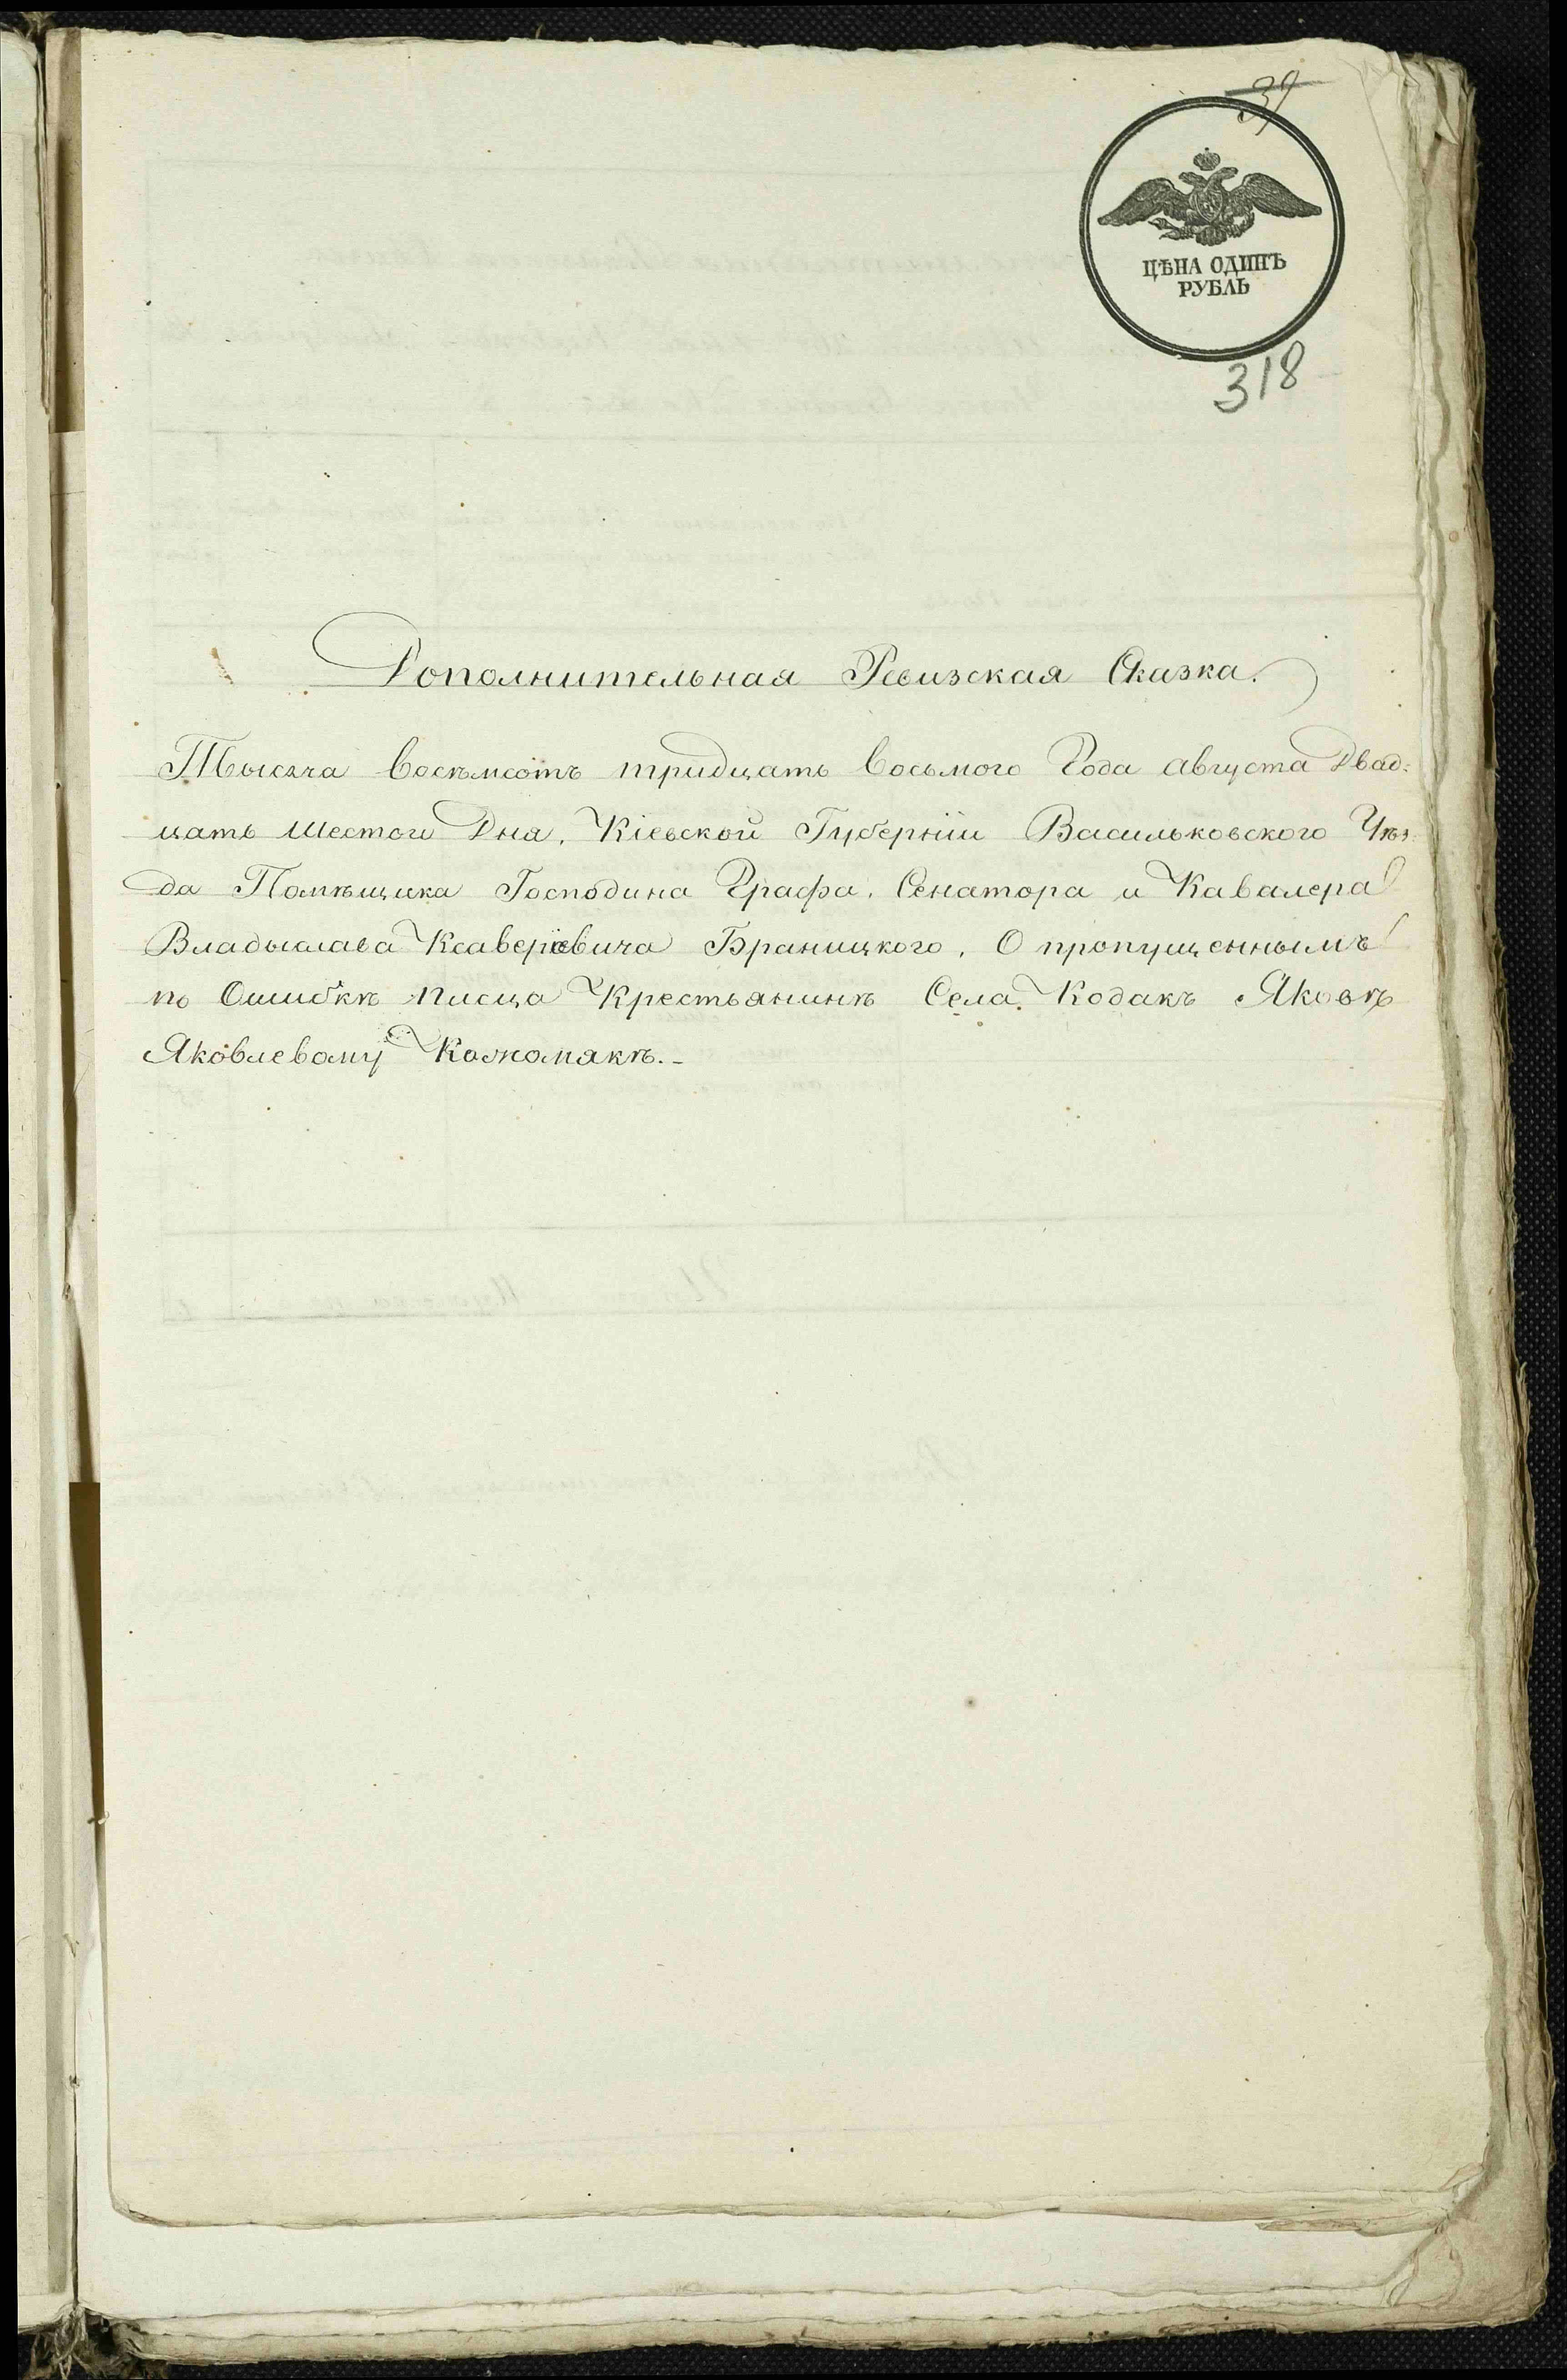 37
ЦѢНА ОДИНЪ
РУБЛЬ
318
Дополнительная Ревизская Сказка.
Тысяча восѣмсотъ тридцать восьмого Года августа Двад:
цать шестого Дня. Кіевской Губерніи Васильковского Уѣз:
да Помѣщика Господина Графа, Сенатора и Кавалера
Владыслава Ксаверіевича Браницкого, О пропущеннымъ
по Ошибкѣ писца Крестьянинѣ Села Кодакъ Яковѣ
Яковлевому Кожомякѣ.-